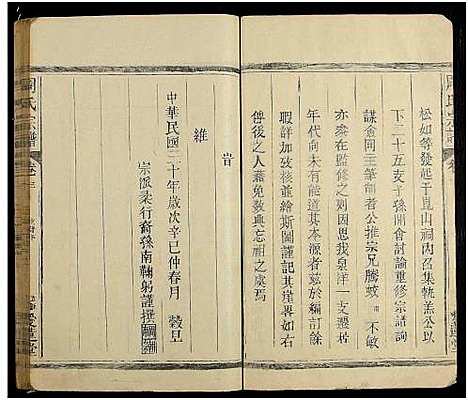 松如等發起于崑山祠內召集執羔公以
下二十五支子孫開會討論重修宗譜詢
謀僉同主筆師者公推宗兄騰蛟 不敏
亦參在監修之列因思我泉洋一支遷
年代向未有能道其本源者茲於編訂餘
暇詳加攷核並繪斯圖謹記其崖畧如右
俾後之人藉免數典忘祖之虞焉
旹
維
中華民國三十年歲次辛巳仲春月 穀旦
宗派柔行裔孫南鞠躬謹撰
周氏宗譜 卷
愛蓮堂